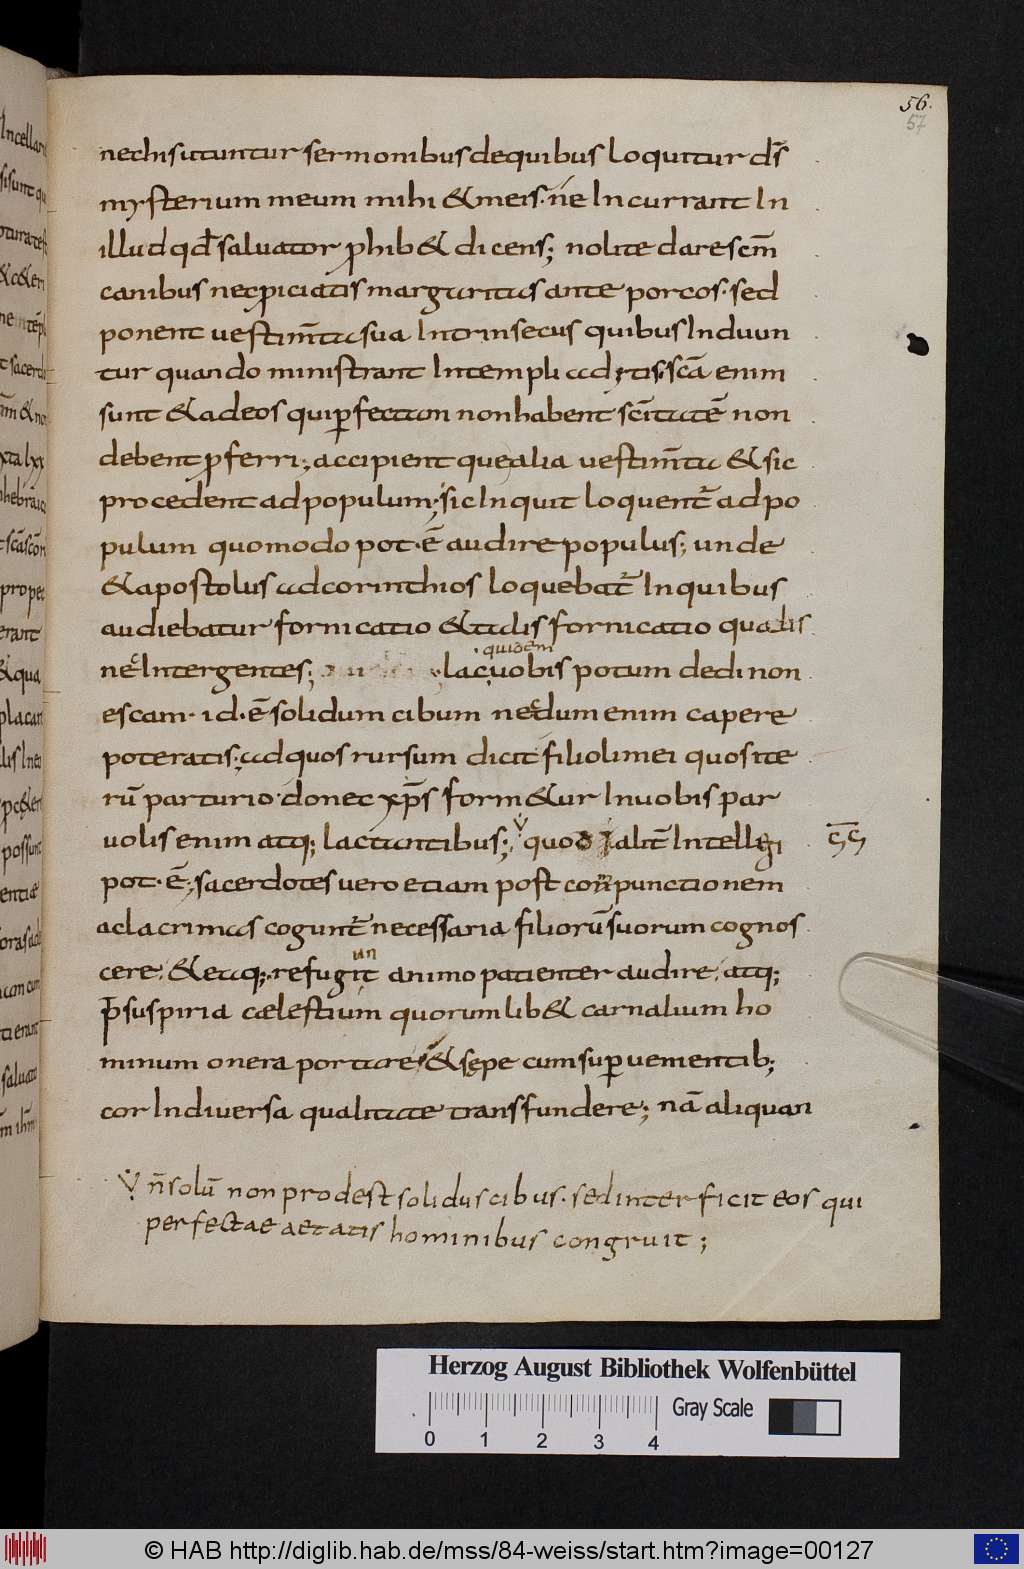 56.
57
nechis utuntur sermonibus dequibus loquitur ds̄
mysterium meum mihi & meis · ne Incurrant In
illud qd̄ saluator ꝓhib& dicens; nolite dare scm̄
canibus nec ꝓiciatis margaritas ante porcos · sed
ponent uestim̄ta sua Intrinsecus quibus Induun
tur quando ministrant Intempli adytis; scā enim
sunt & adeos qui ꝑfectam non habent scītatē non
debent ꝓferri; accipient que alia uestim̄ta & sic
procedent ad populum; sic Inquit loquentr̄ ad po
pulum quomodo pot · ē audire populus; unde
& apostolus ad corinthios loquebatr̄ In quibus
audiebatur fornicatio & talis fornicatio qualis
nec Intergentes;
· quidem
lac uobis potum dedi non
escam · id · ē solidum cibum necdum enim capere
poteratis; ad quos rursum dicit filioli mei quos ite
rū parturio · donec xp̄s form&ur In uobis par
uolis enim atq; lactantibus; quod aliter Intellegi
pot · ē; sacerdotes uero etiam post compunctionem
ac lacrimas coguntr̄ necessaria filiorū suorum cognos
cere · & eaq; refugiunt animo patienter audire · atq;
p̄ suspiria caelestium quorumlib& carnalium ho
minum onera portare & sepe cum suꝑuementib;
cor In diuersa qualitate transfundere; nā aliquan
n̄ solū non prodest solidus cibus · sed interficit eos qui
perfectae aetatis hominibus congruit;
Herzog August Bibliothek Wolfenbüttel
Gray Scale
0 1 2 3 4
© HAB http://diglib.hab.de/mss/84-weiss/start.htm?image=00127